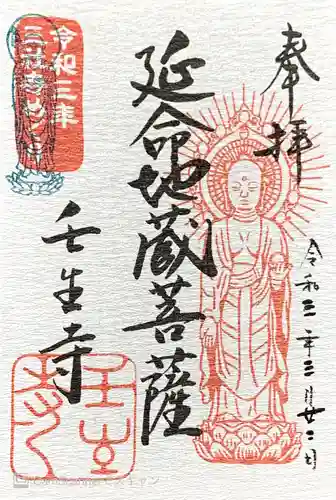 奉拝
令和三年三月廿二日
延命地蔵菩薩
壬生寺
令和三年